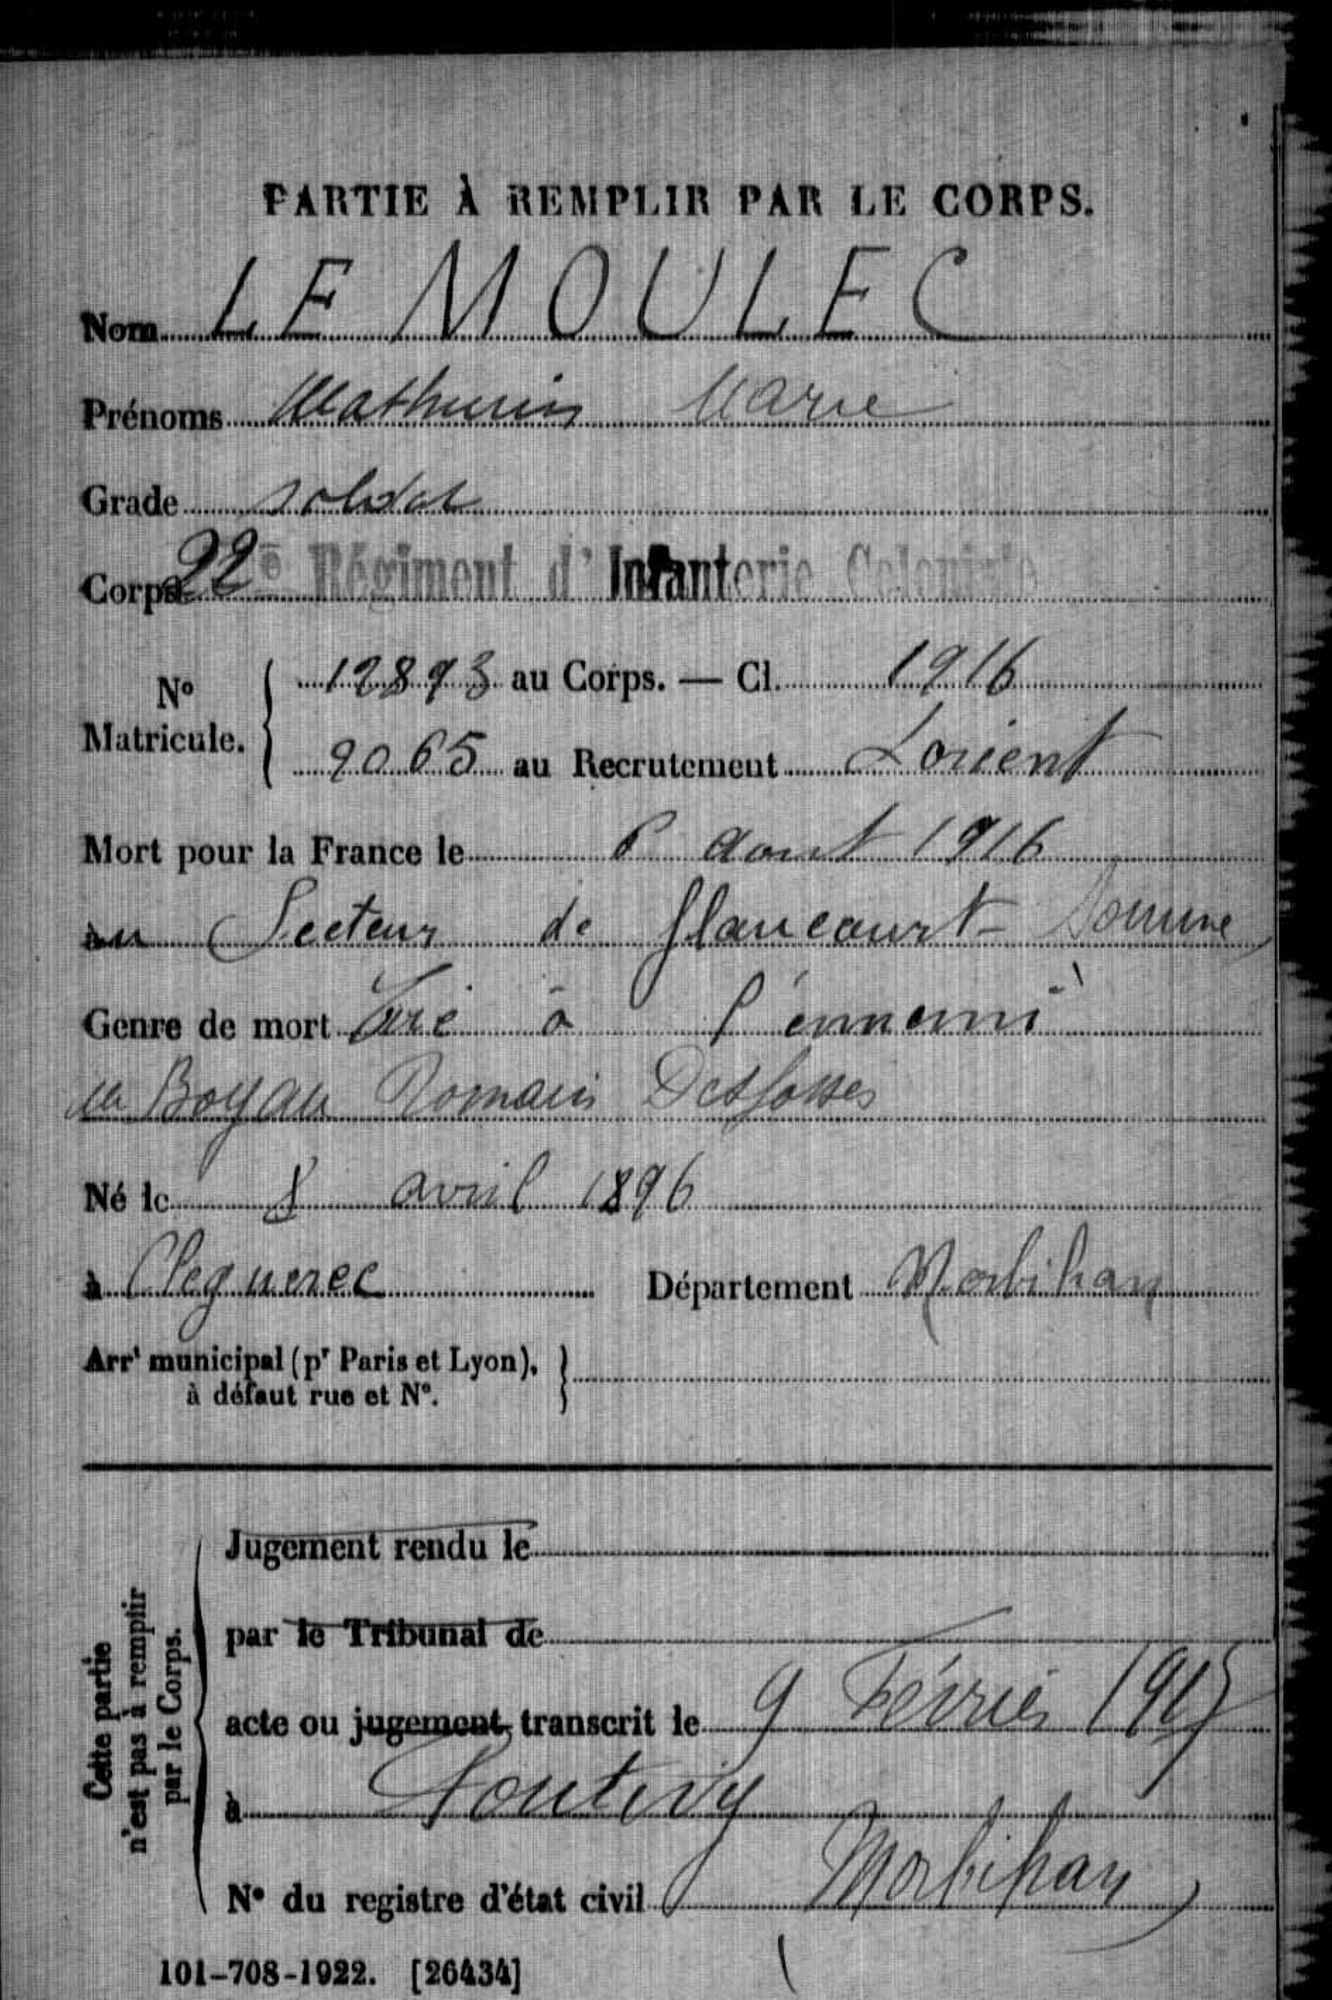 PARTIE À REMPLIR PAR LE CORPS.
Nom LE MOULEC
Prénoms Mathurin Marie
Grade soldat
Corps 22e Régiment d'Infanterie Coloniale
No Matricule. 12893 au Corps. — Cl. 1916
2065 au Recrutement Lorient
Mort pour la France le 6 aout 1916
au Secteur de flaucourt - Somme
Genre de mort Tué à l'ennemi
Boyau Romain Desfossés
Né le 8 avril 1896
à Cleguerec Département Morbihan
Arrt municipal (pr Paris et Lyon),
à défaut rue et N°.
Cette partie
n'est pas à remplir
par le Corps.
Jugement rendu le
par le Tribunal de
acte ou jugement transcrit le 9 Février 1917
à Pontivy
Morbihan
N° du registre d'état civil
101-708-1922. [26434]